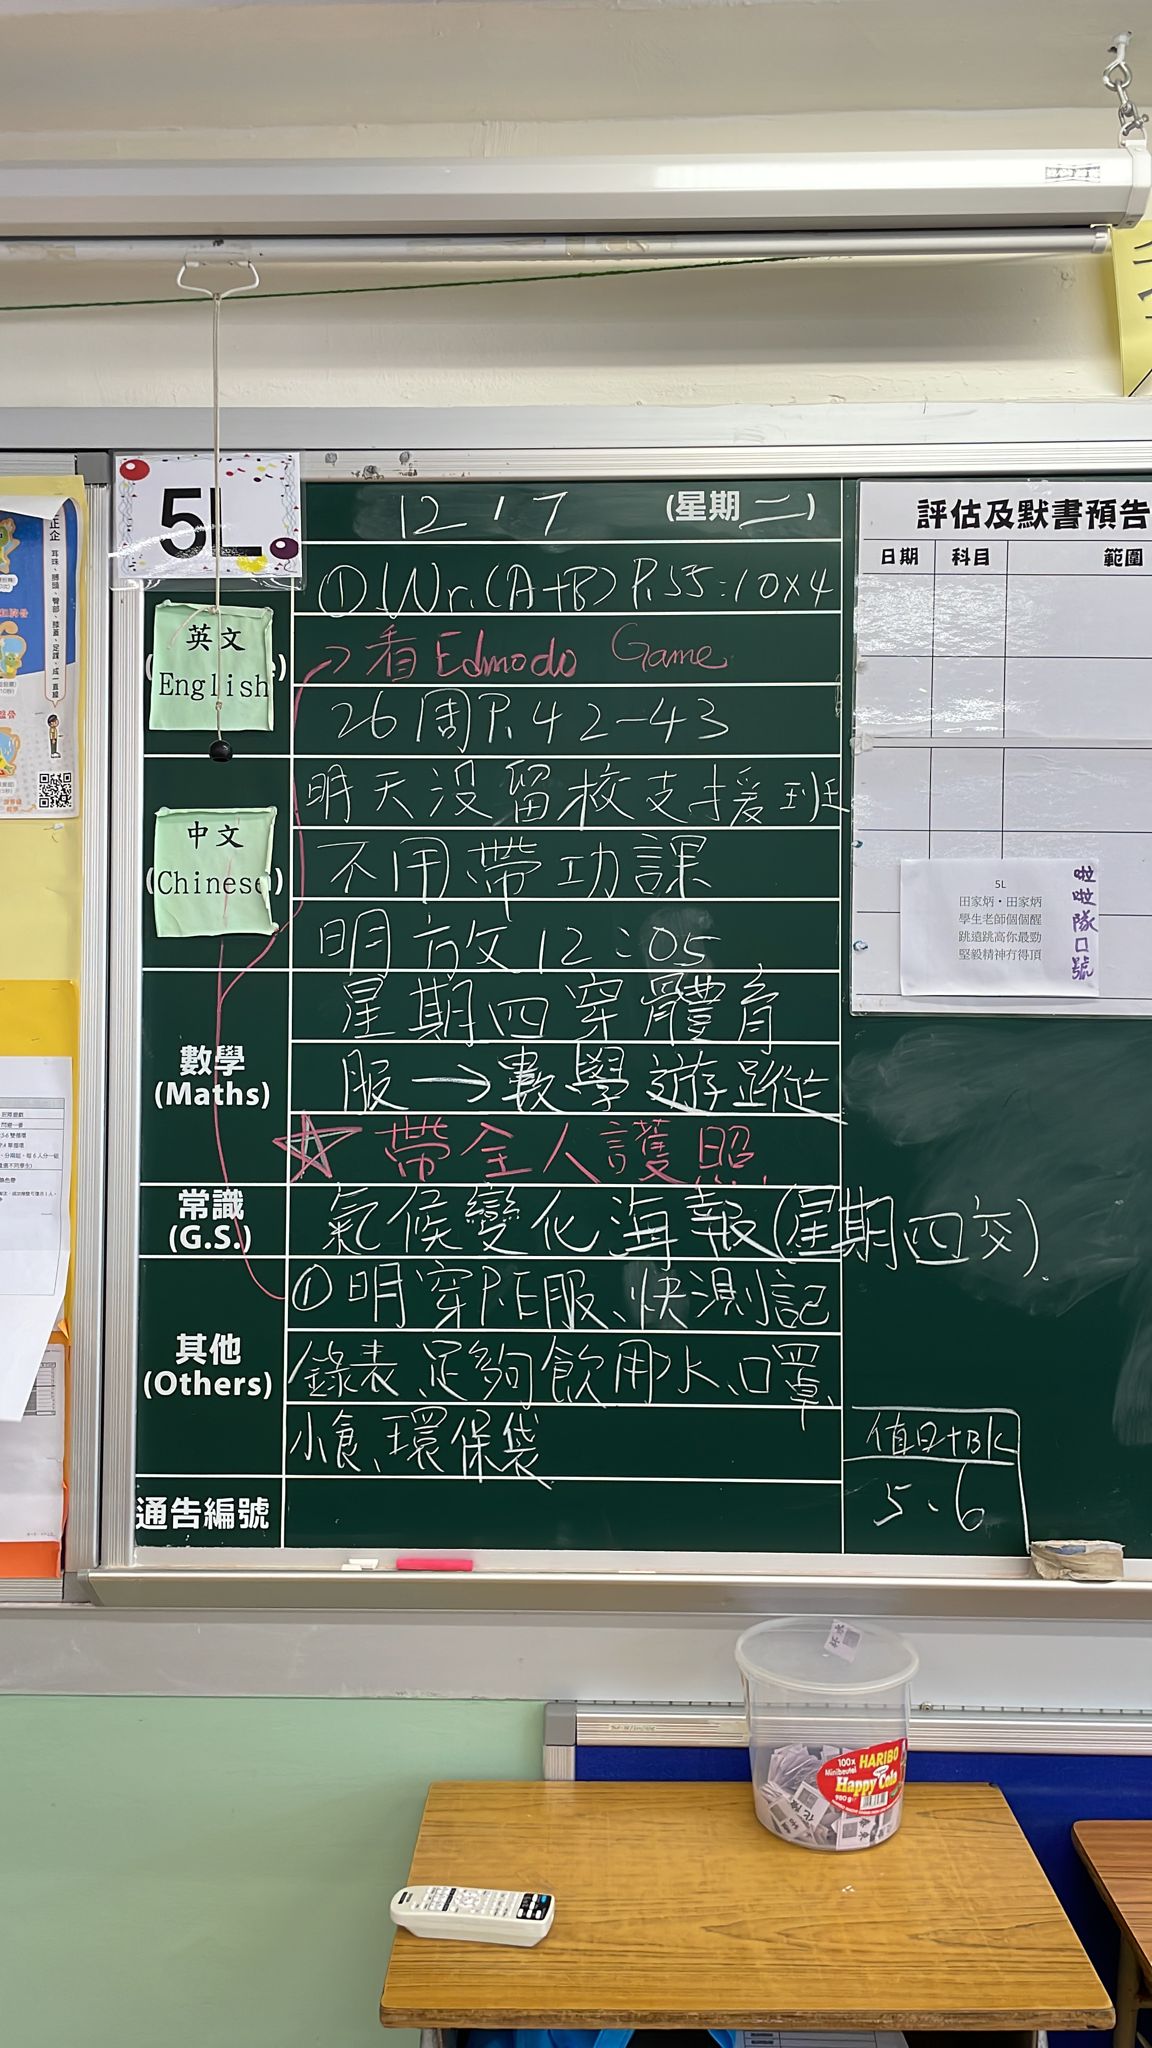 5L
12 / 7 (星期二)
英文
English
① Wr. (A+B) P.55:10x4
→看 Edmodo Game
26周P.42-43
中文
(Chinese)
明天沒留校支援班
不用帶功課
明放12:05
數學
(Maths)
星期四穿體育
服→數學遊蹤
☆帶全人護照
常識
(G.S.)
氣候變化海報(星期四交).
其他
(Others)
①明穿P.E服、快測記
錄表、足夠飲用水、口罩、
小食、環保袋
通告編號
評估及默書預告
日期 科目 範圍
5L
田家炳・田家炳
學生老師個個醒
跳遠跳高你最勁
堅毅精神冇得頂
啦啦隊口號
值日+BK
5、6
100x
Minibeutel
HARIBO
Happy Cola
980 g